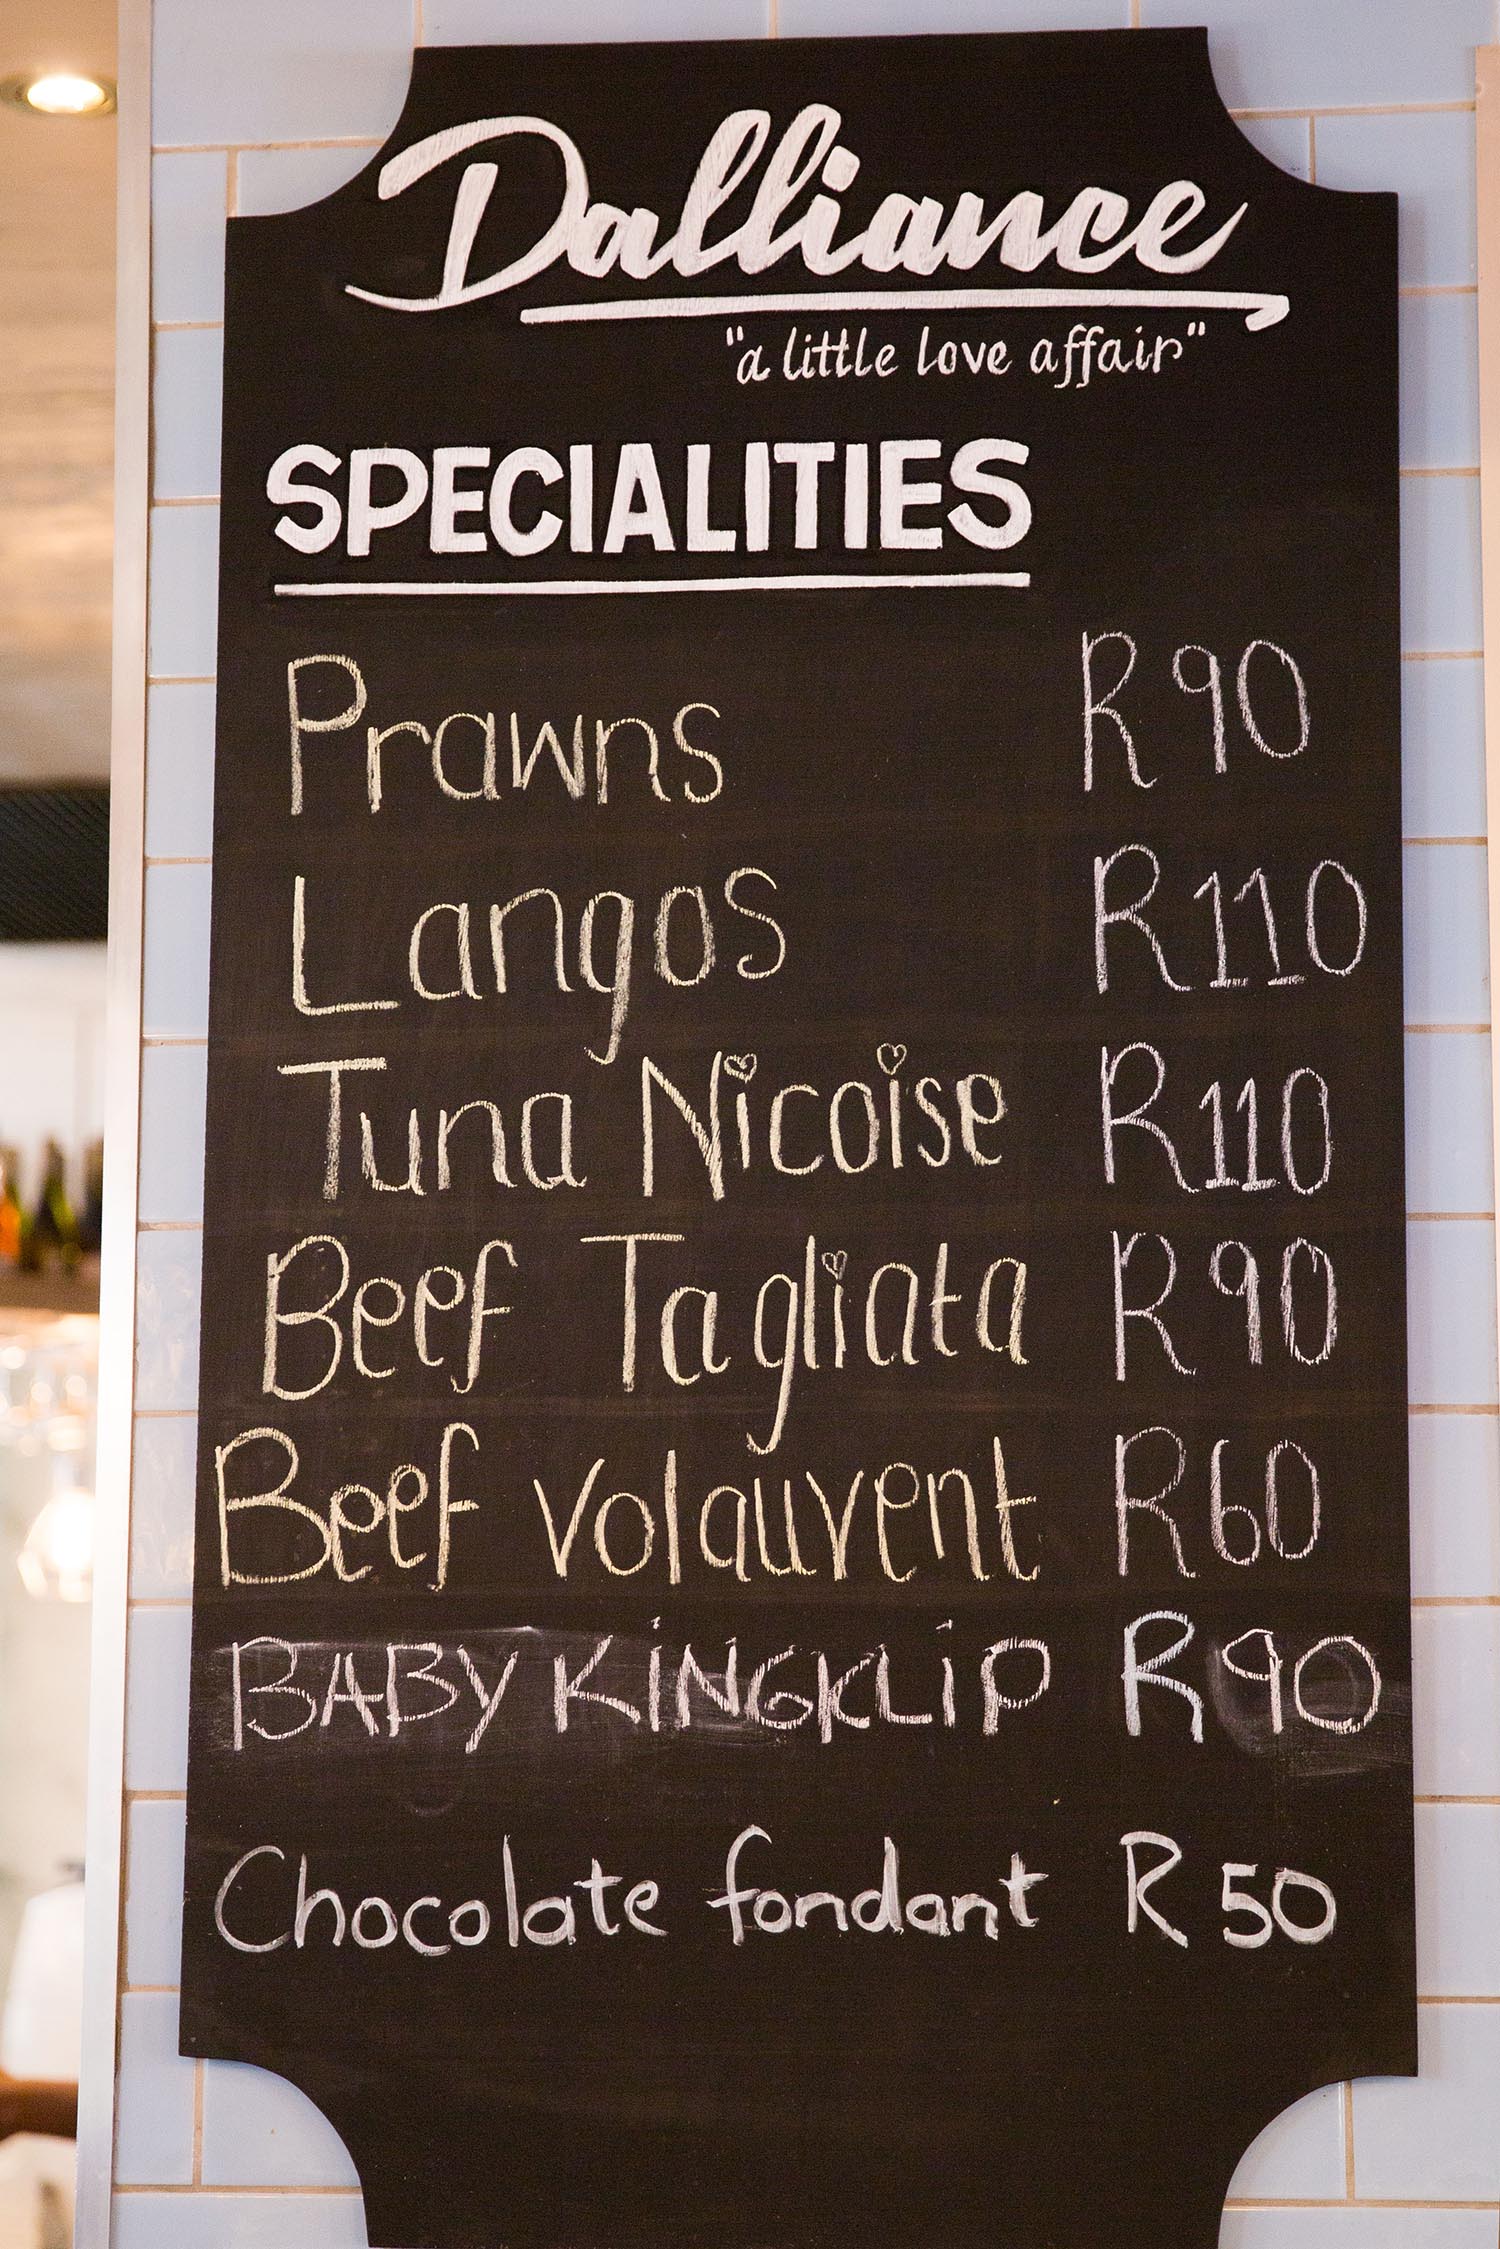 Dalliance
"a little love affair"
SPECIALITIES
Prawns R90
Langos R110
Tuna Nicoise R110
Beef Tagliata R90
Beef volauvent R60
BABY KiNGKLiP R90
Chocolate fondant R50